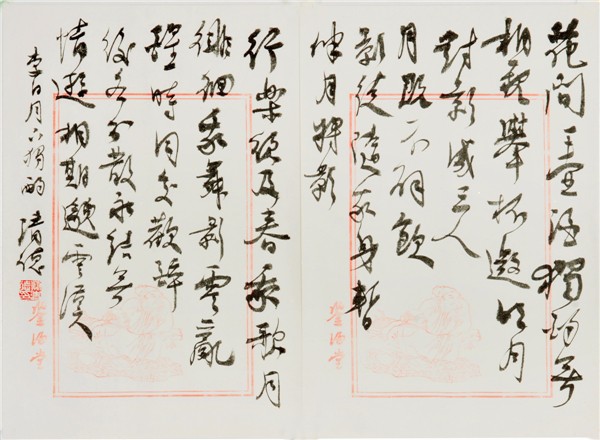 花間一壺酒獨酌無
相親舉杯邀明月
對影成三人
月既不解飲
影徒隨我身暫
伴月將影
行樂須及春我歌月
徘徊我舞影零亂
醒時同交歡醉
後各分散永結無
情遊相期邈雲漢
李白月下獨酌